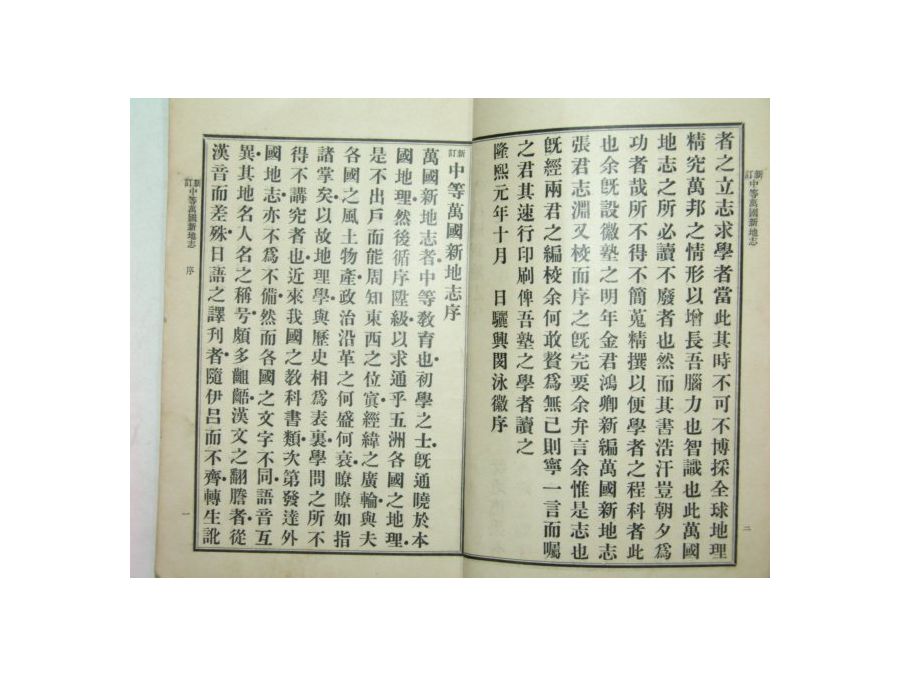 新訂 中等萬國新地志
二
者之立志求學者當此其時不可不博採全球地理
精究萬邦之情形以增長吾腦力也智識也此萬國
地志之所必讀不廢者也然而其書浩汗豈朝夕爲
功者哉所不得不簡蒐精撰以便學者之程科者此
也余旣設徽塾之明年金君鴻卿新編萬國新地志
張君志淵又校而序之旣完要余弁言余惟是志也
旣經兩君之編校余何敢贅爲無已則寧一言而囑
之君其速行印刷俾吾塾之學者讀之
隆熙元年十月 日驪興閔泳徽序
新訂 中等萬國新地志序
萬國新地志者中等教育也初學之士旣通曉於本
國地理然後循序陞級以求通乎五洲各國之地理
是不出戶而能周知東西之位寘經緯之廣輪與夫
各國之風土物產政治沿革之何盛何衰瞭瞭如指
諸掌矣以故地理學與歷史相爲表裏學問之所不
得不講究者也近來我國之教科書類次第發達外
國地志亦不爲不備然而各國之文字不同語音互
異其地名人名之稱号頗多齟齬漢文之翻謄者從
漢音而差殊日語之譯刊者隨伊呂而不齊轉生訛
新訂 中等萬國新地志 序
一